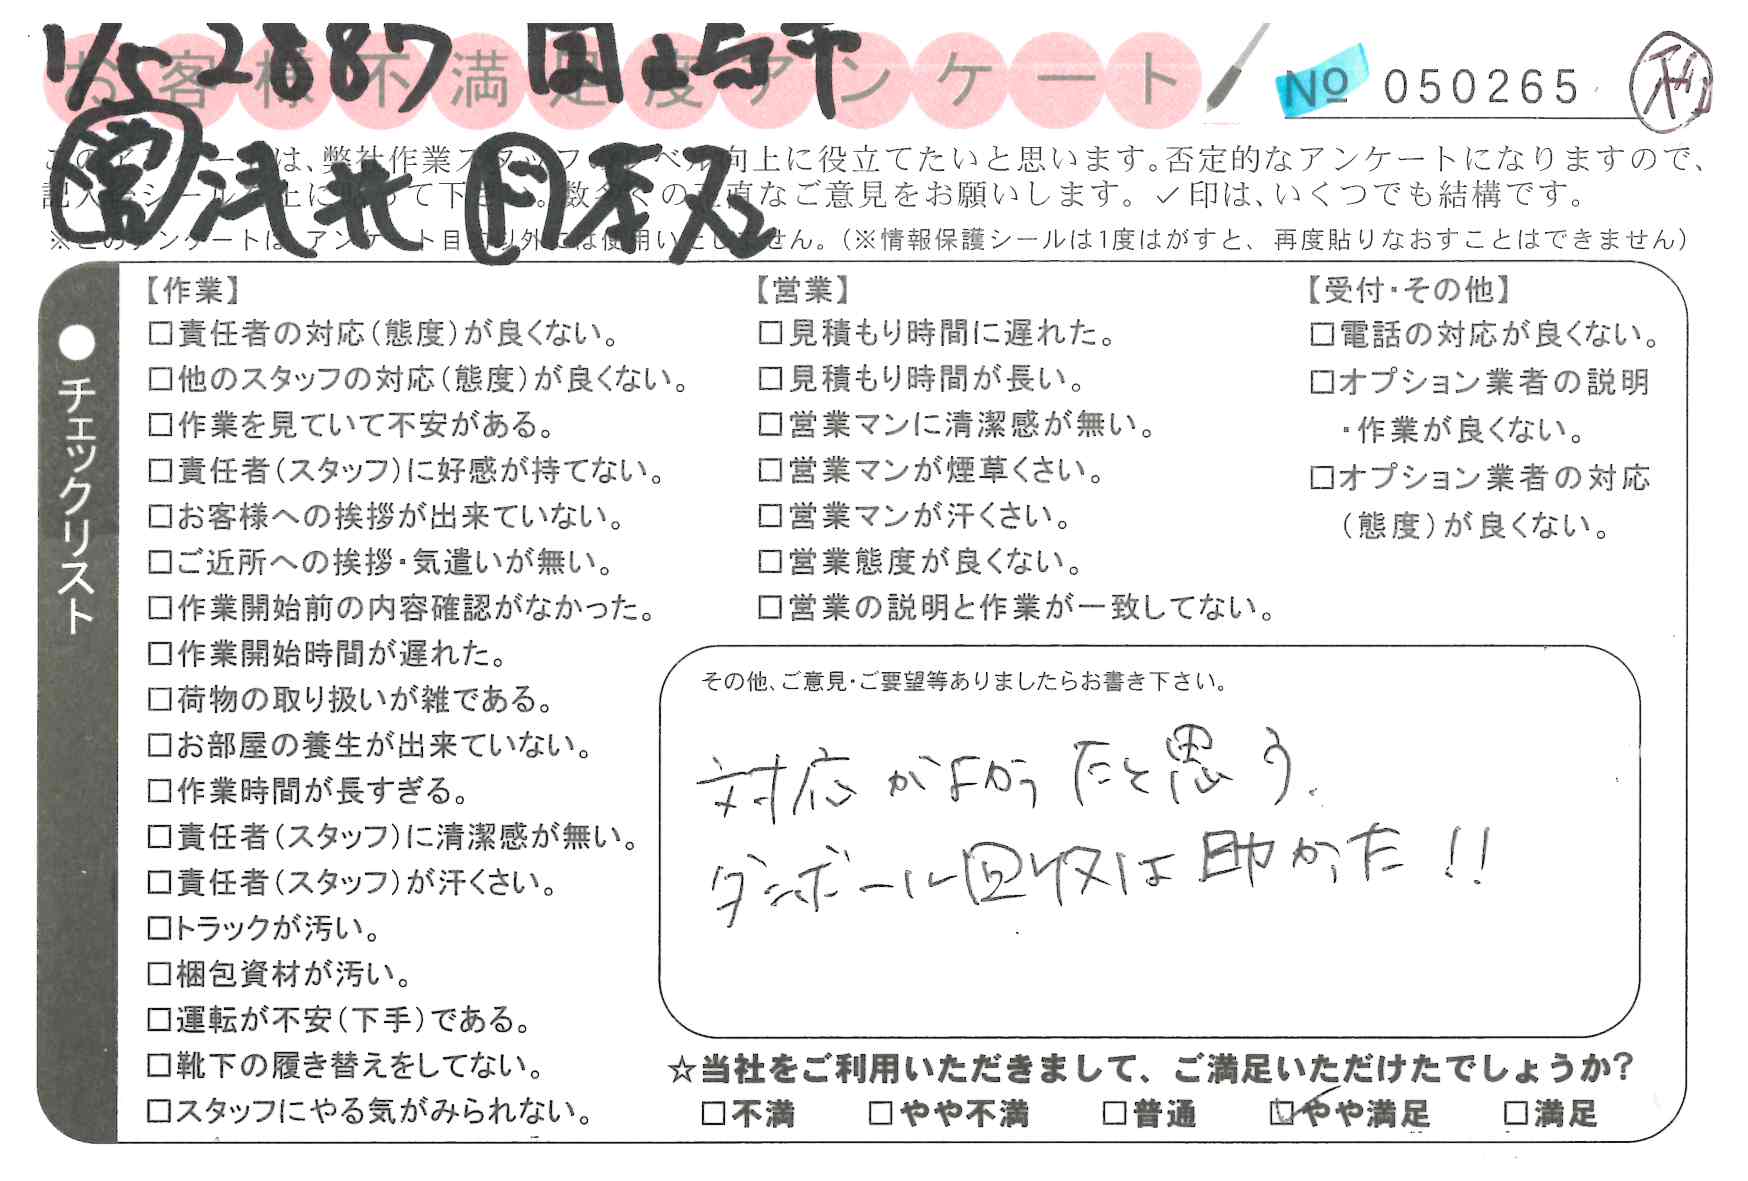 1/5 2887 岡崎市
お客様不満足度アンケート
№ 050265
営 浅井 ド 本又
このアンケートは、弊社作業スタッフのレベル向上に役立てたいと思います。否定的なアンケートになりますので、
記入後シールを上に貼って下さい。数多くの正直なご意見をお願いします。✓印は、いくつでも結構です。
※このアンケートは、アンケート目的以外には使用いたしません。(※情報保護シールは1度はがすと、再度貼りなおすことはできません)
●チェックリスト
【作業】
□責任者の対応(態度)が良くない。
□他のスタッフの対応(態度)が良くない。
□作業を見ていて不安がある。
□責任者(スタッフ)に好感が持てない。
□お客様への挨拶が出来ていない。
□ご近所への挨拶・気遣いが無い。
□作業開始前の内容確認がなかった。
□作業開始時間が遅れた。
□荷物の取り扱いが雑である。
□お部屋の養生が出来ていない。
□作業時間が長すぎる。
□責任者(スタッフ)に清潔感が無い。
□責任者(スタッフ)が汗くさい。
□トラックが汚い。
□梱包資材が汚い。
□運転が不安(下手)である。
□靴下の履き替えをしてない。
□スタッフにやる気がみられない。
【営業】
□見積もり時間に遅れた。
□見積もり時間が長い。
□営業マンに清潔感が無い。
□営業マンが煙草くさい。
□営業マンが汗くさい。
□営業態度が良くない。
□営業の説明と作業が一致してない。
【受付・その他】
□電話の対応が良くない。
□オプション業者の説明
・作業が良くない。
□オプション業者の対応
(態度)が良くない。
その他、ご意見・ご要望等ありましたらお書き下さい。
対応がよかったと思う.
ダンボール回収は助かった!!
☆当社をご利用いただきまして、ご満足いただけたでしょうか?
□不満 □やや不満 □普通 ☑やや満足 □満足